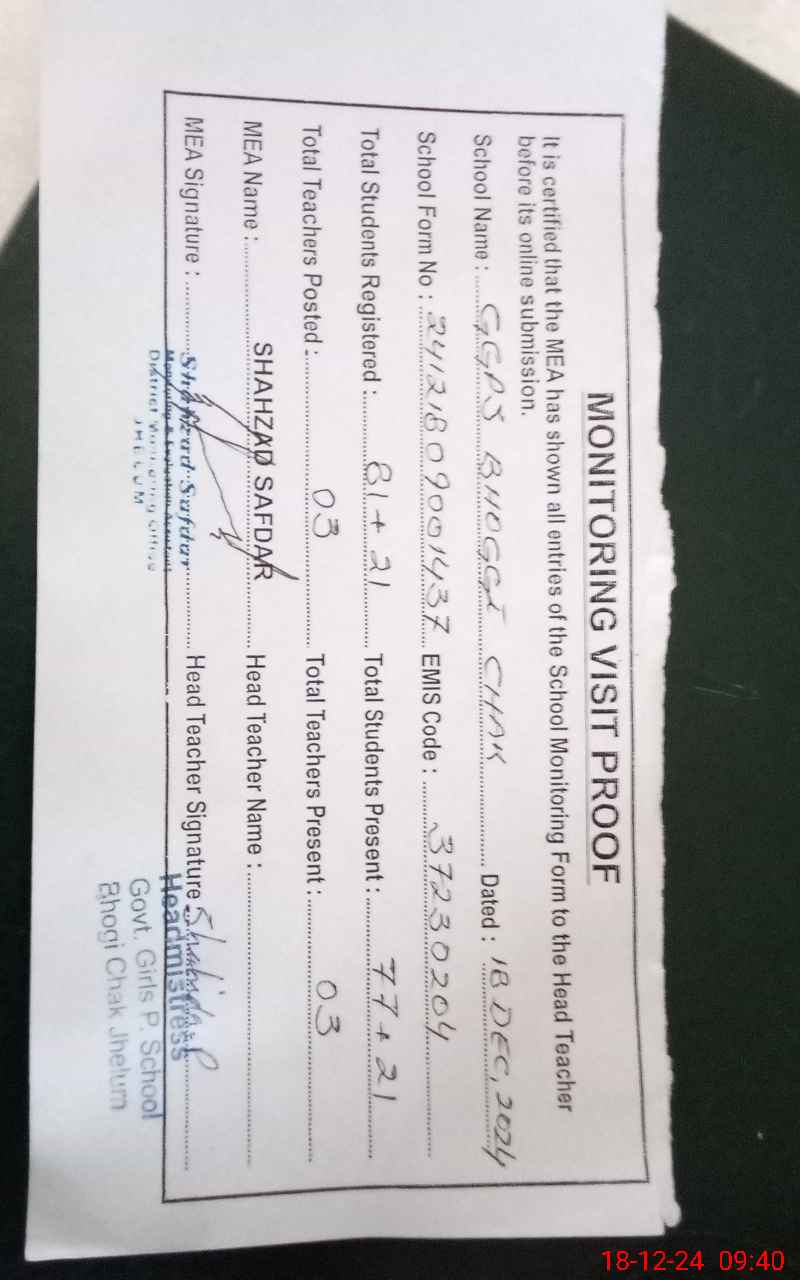 MONITORING VISIT PROOF
It is certified that the MEA has shown all entries of the School Monitoring Form to the Head Teacher
before its online submission.
School Name : GGPS BHOGGI CHAK Dated : 18 DEC, 2024
School Form No : 241218090001437 EMIS Code : 37230204
Total Students Registered : 81 + 21 Total Students Present : 77 + 21
Total Teachers Posted : 03 Total Teachers Present : 03
MEA Name : SHAHZAD SAFDAR Head Teacher Name :
MEA Signature : Shahzad Safdar Head Teacher Signature
Monitoring & Evaluation Assistant
District Monitoring Office
JHELUM
Headmistress
Govt. Girls P. School
Bhogi Chak Jhelum
18-12-24 09:40